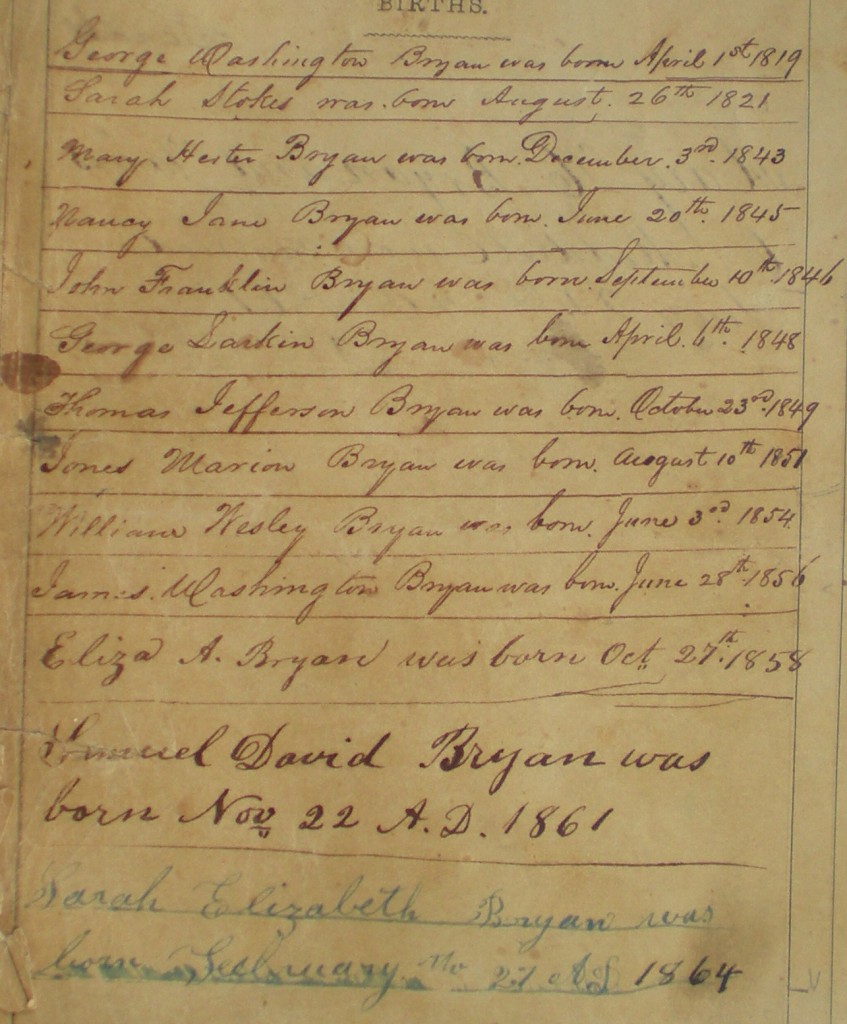 BIRTHS.
George Washington Bryan was born April 1st 1819
Sarah Stokes was born August. 26th 1821
Mary Hester Bryan was born. December. 3rd. 1843
Nancy Jane Bryan was born. June 20th. 1845
John Franklin Bryan was born. September 10th. 1846
George Larkin Bryan was born April. 6th. 1848
Thomas Jefferson Bryan was born. October 23rd. 1849
Jones Marion Bryan was born. August 10th 1851
William Wesley Bryan was born. June 3rd. 1854
James. Washington Bryan was born. June 28th. 1856
Eliza A. Bryan was born Oct. 27th. 1858
Samuel David Bryan was
born Nov 22 A. D. 1861
Sarah Elizabeth Bryan was
born February 27 AD 1864